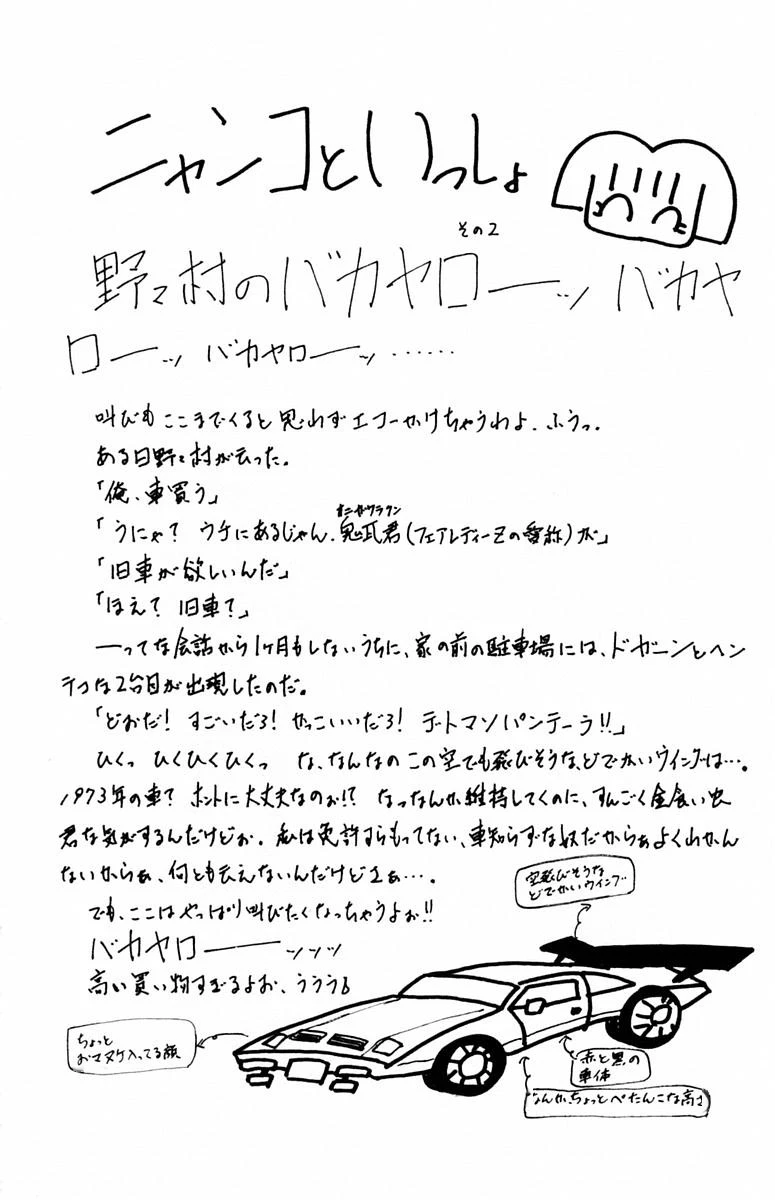 ニャンコといっしょ
その2
野々村のバカヤローーッ バカヤ
ローーッ バカヤローーッ ……
叫びもここまでくると思わずエコーかけちゃうわよ.ふうっ.
ある日野々村が云った。
「俺、車買う」
オニガワラクン
「うにゃ? ウチにあるじゃん.鬼瓦君(フェアレディーZの愛称)が」
「旧車が欲しいんだ」
「ほえ? 旧車?」
ーってな会話から1ヶ月もしないうちに、家の前の駐車場には、ドガーンとヘン
テコな2台目が出現したのだ。
「どおだ! すごいだろ! かっこいいだろ! デ・トマソパンテーラ!!」
ひくっ ひくひくひくっ な、なんなのこの空でも飛びそうな、どでかいウイングは…。
1973年の車? ホントに大丈夫なのぉ!? なっなんか維持してくのに、すんごく金食い虫
君な気がするんだけどぉ. 私は免許すらもってない、車知らずな奴だからぁよくわかん
ないからぁ、何とも云えないんだけどさぁ….
でも、ここはやっぱり叫びたくなっちゃうよぉ!!
バカヤローーーーッッッ
高い買い物すぎるよお、ううう
空飛びそうな
どでかいウイング
ちょっと
おマヌケ入ってる顔
赤と黒の
車体
なんか、ちょっとぺたんこな高さ